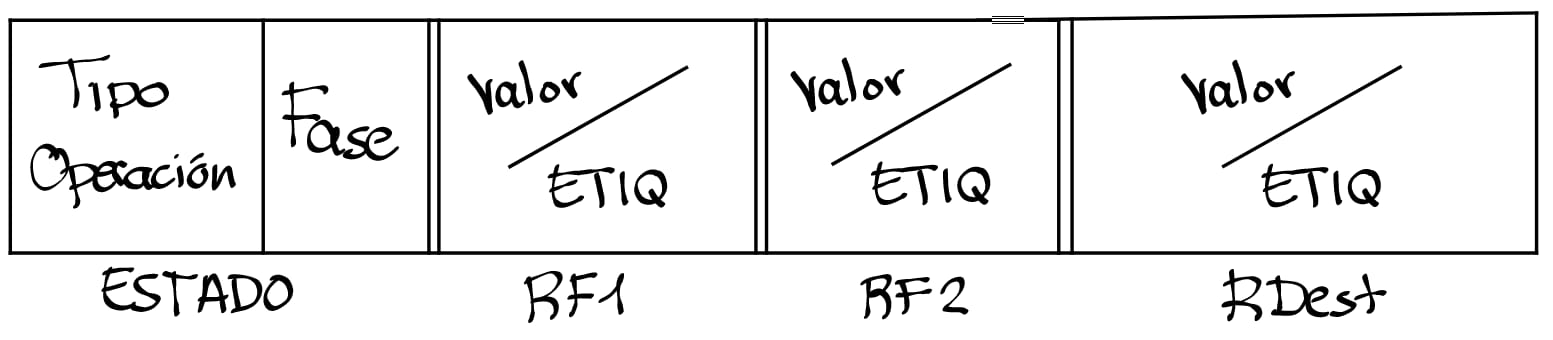 Tipo
Operación
Fase
Valor
ETIQ
Valor
ETIQ
Valor
ETIQ
ESTADO
RF1
RF2
RDest